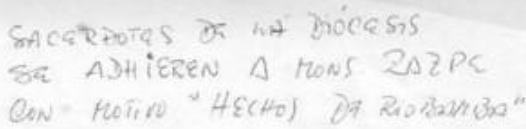 SACERDOTES DE LA DIÓCESIS
SE ADHIEREN A MONS ZAZPE
CON MOTIVO "HECHOS DE RIOBAMBA"